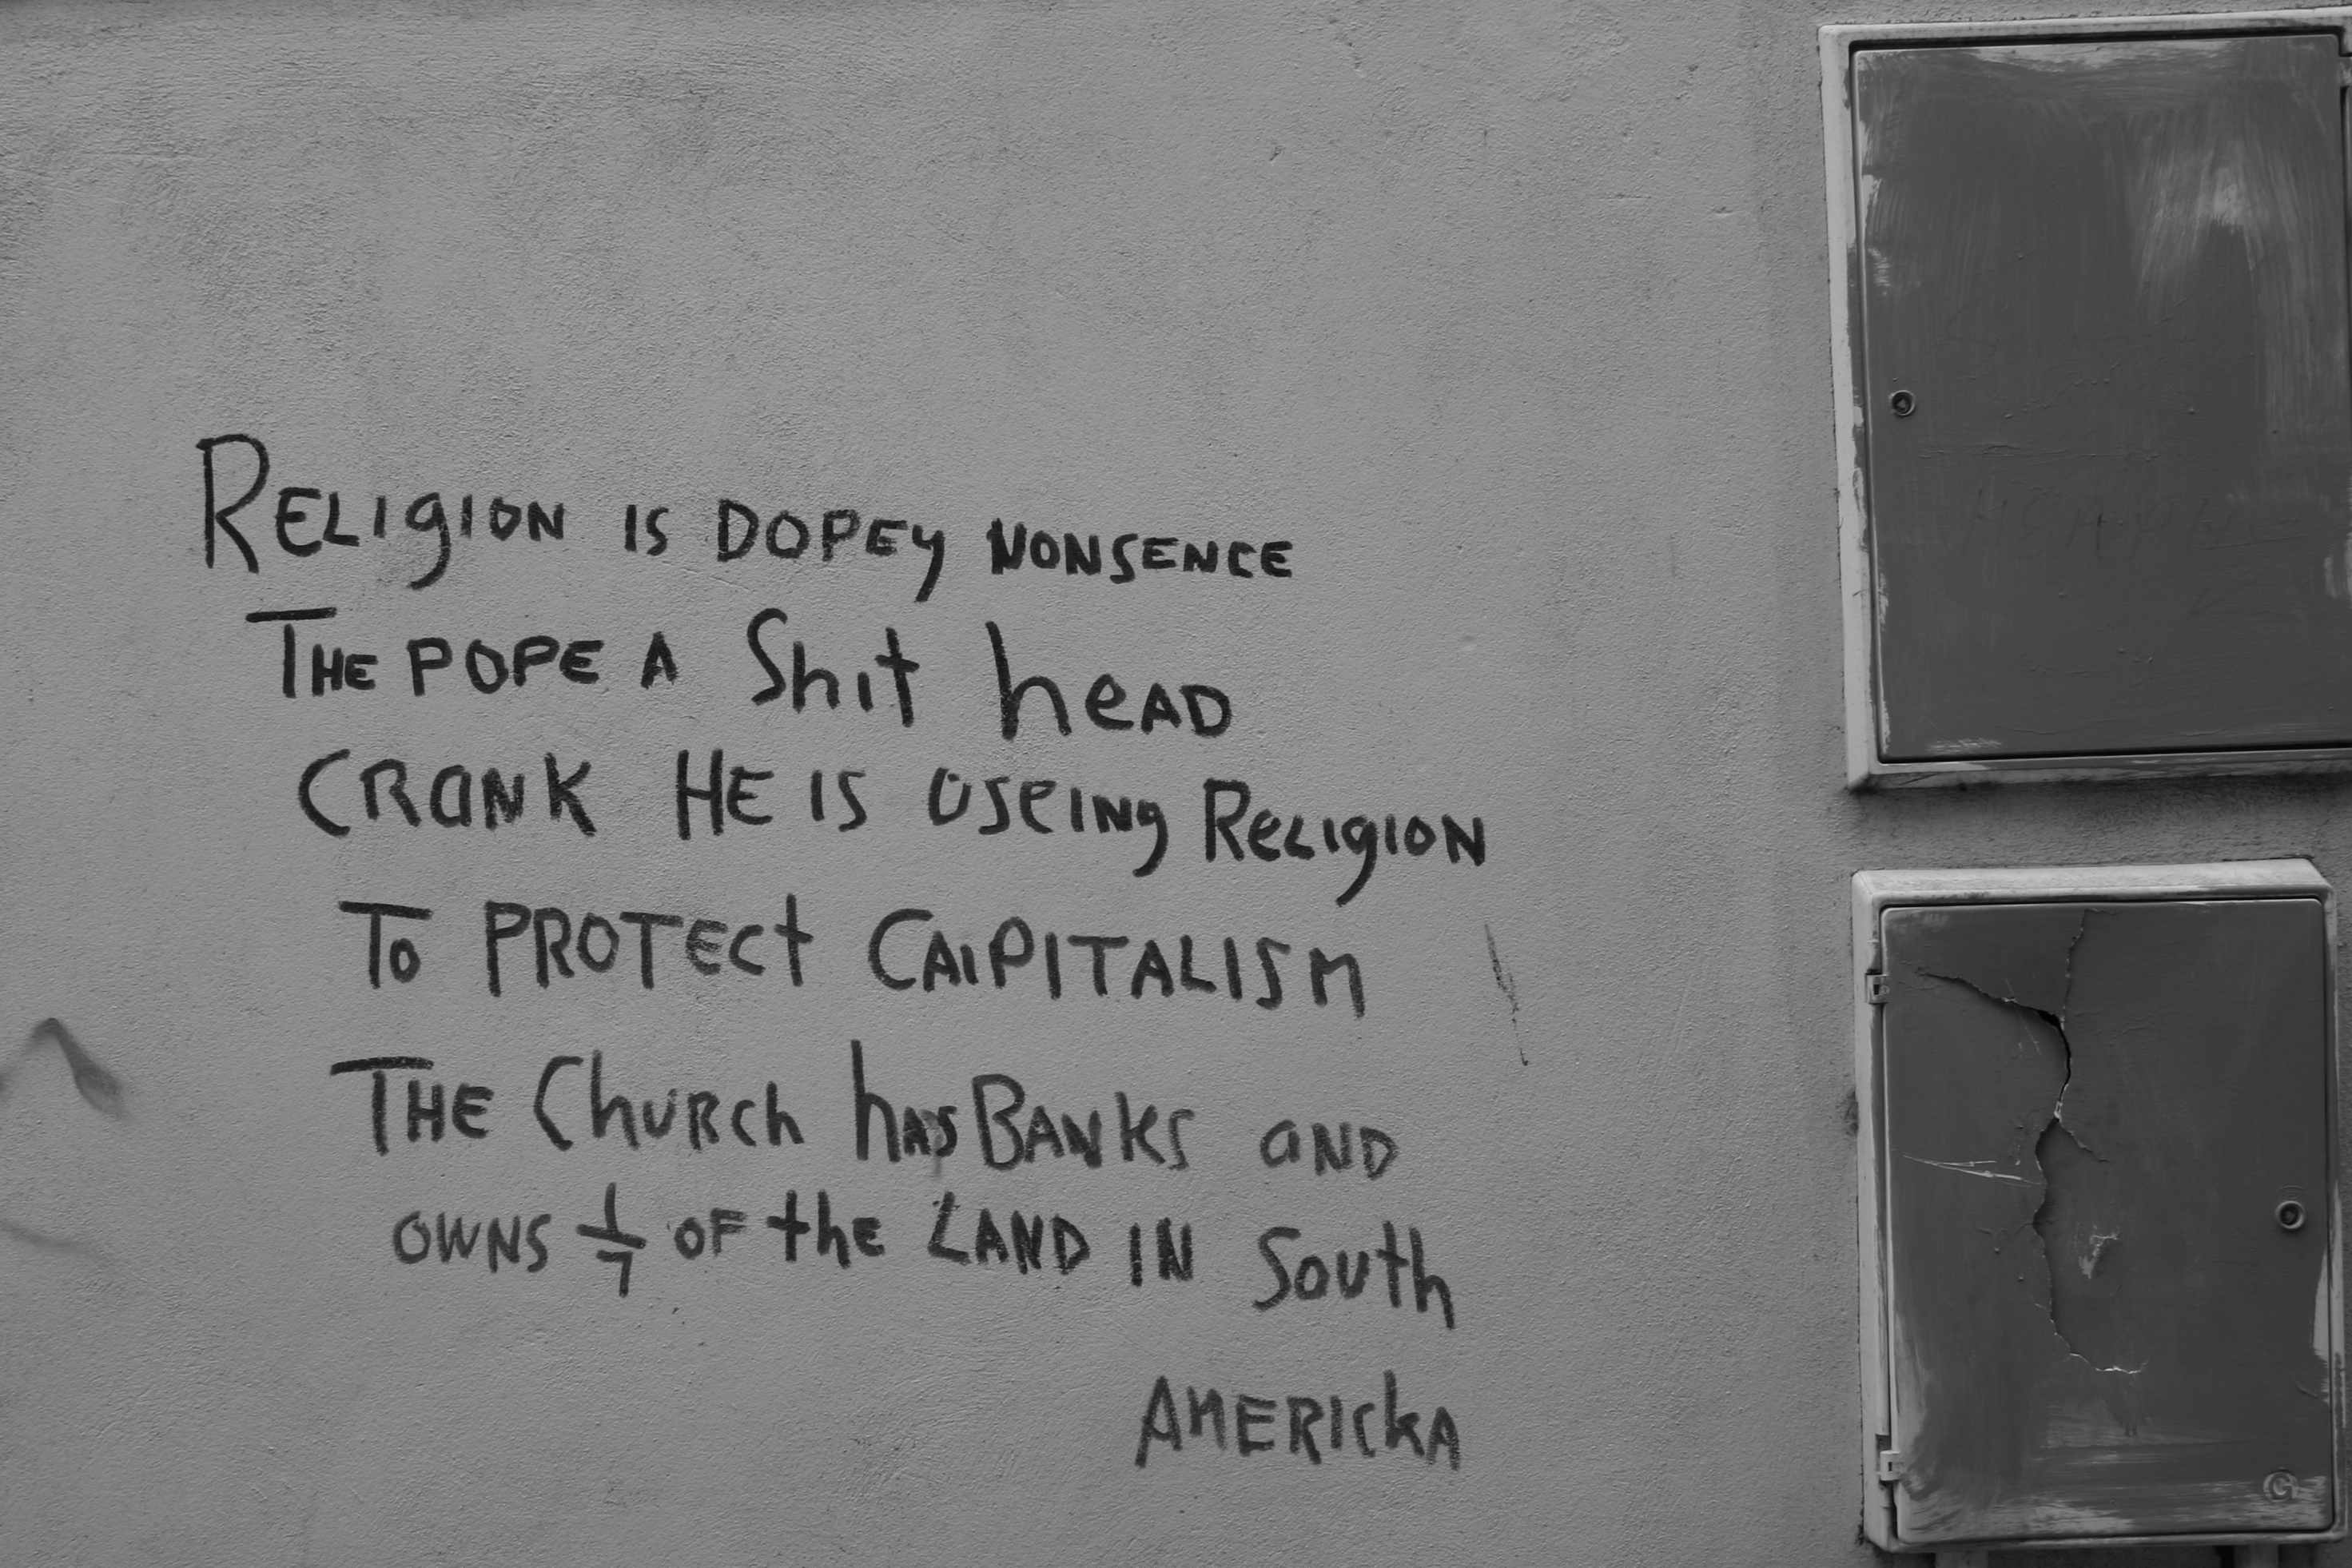 RELIgION IS DOPEy NONSENCE
THE POPE A Shit heAD
CRANK HE IS USEINg ReLIgION
To PROTEct CAIPITALISM
THE ChURch hAS BANKS AND
OWNS 1/7 OF thE LAND IN South
AMERICkA
G